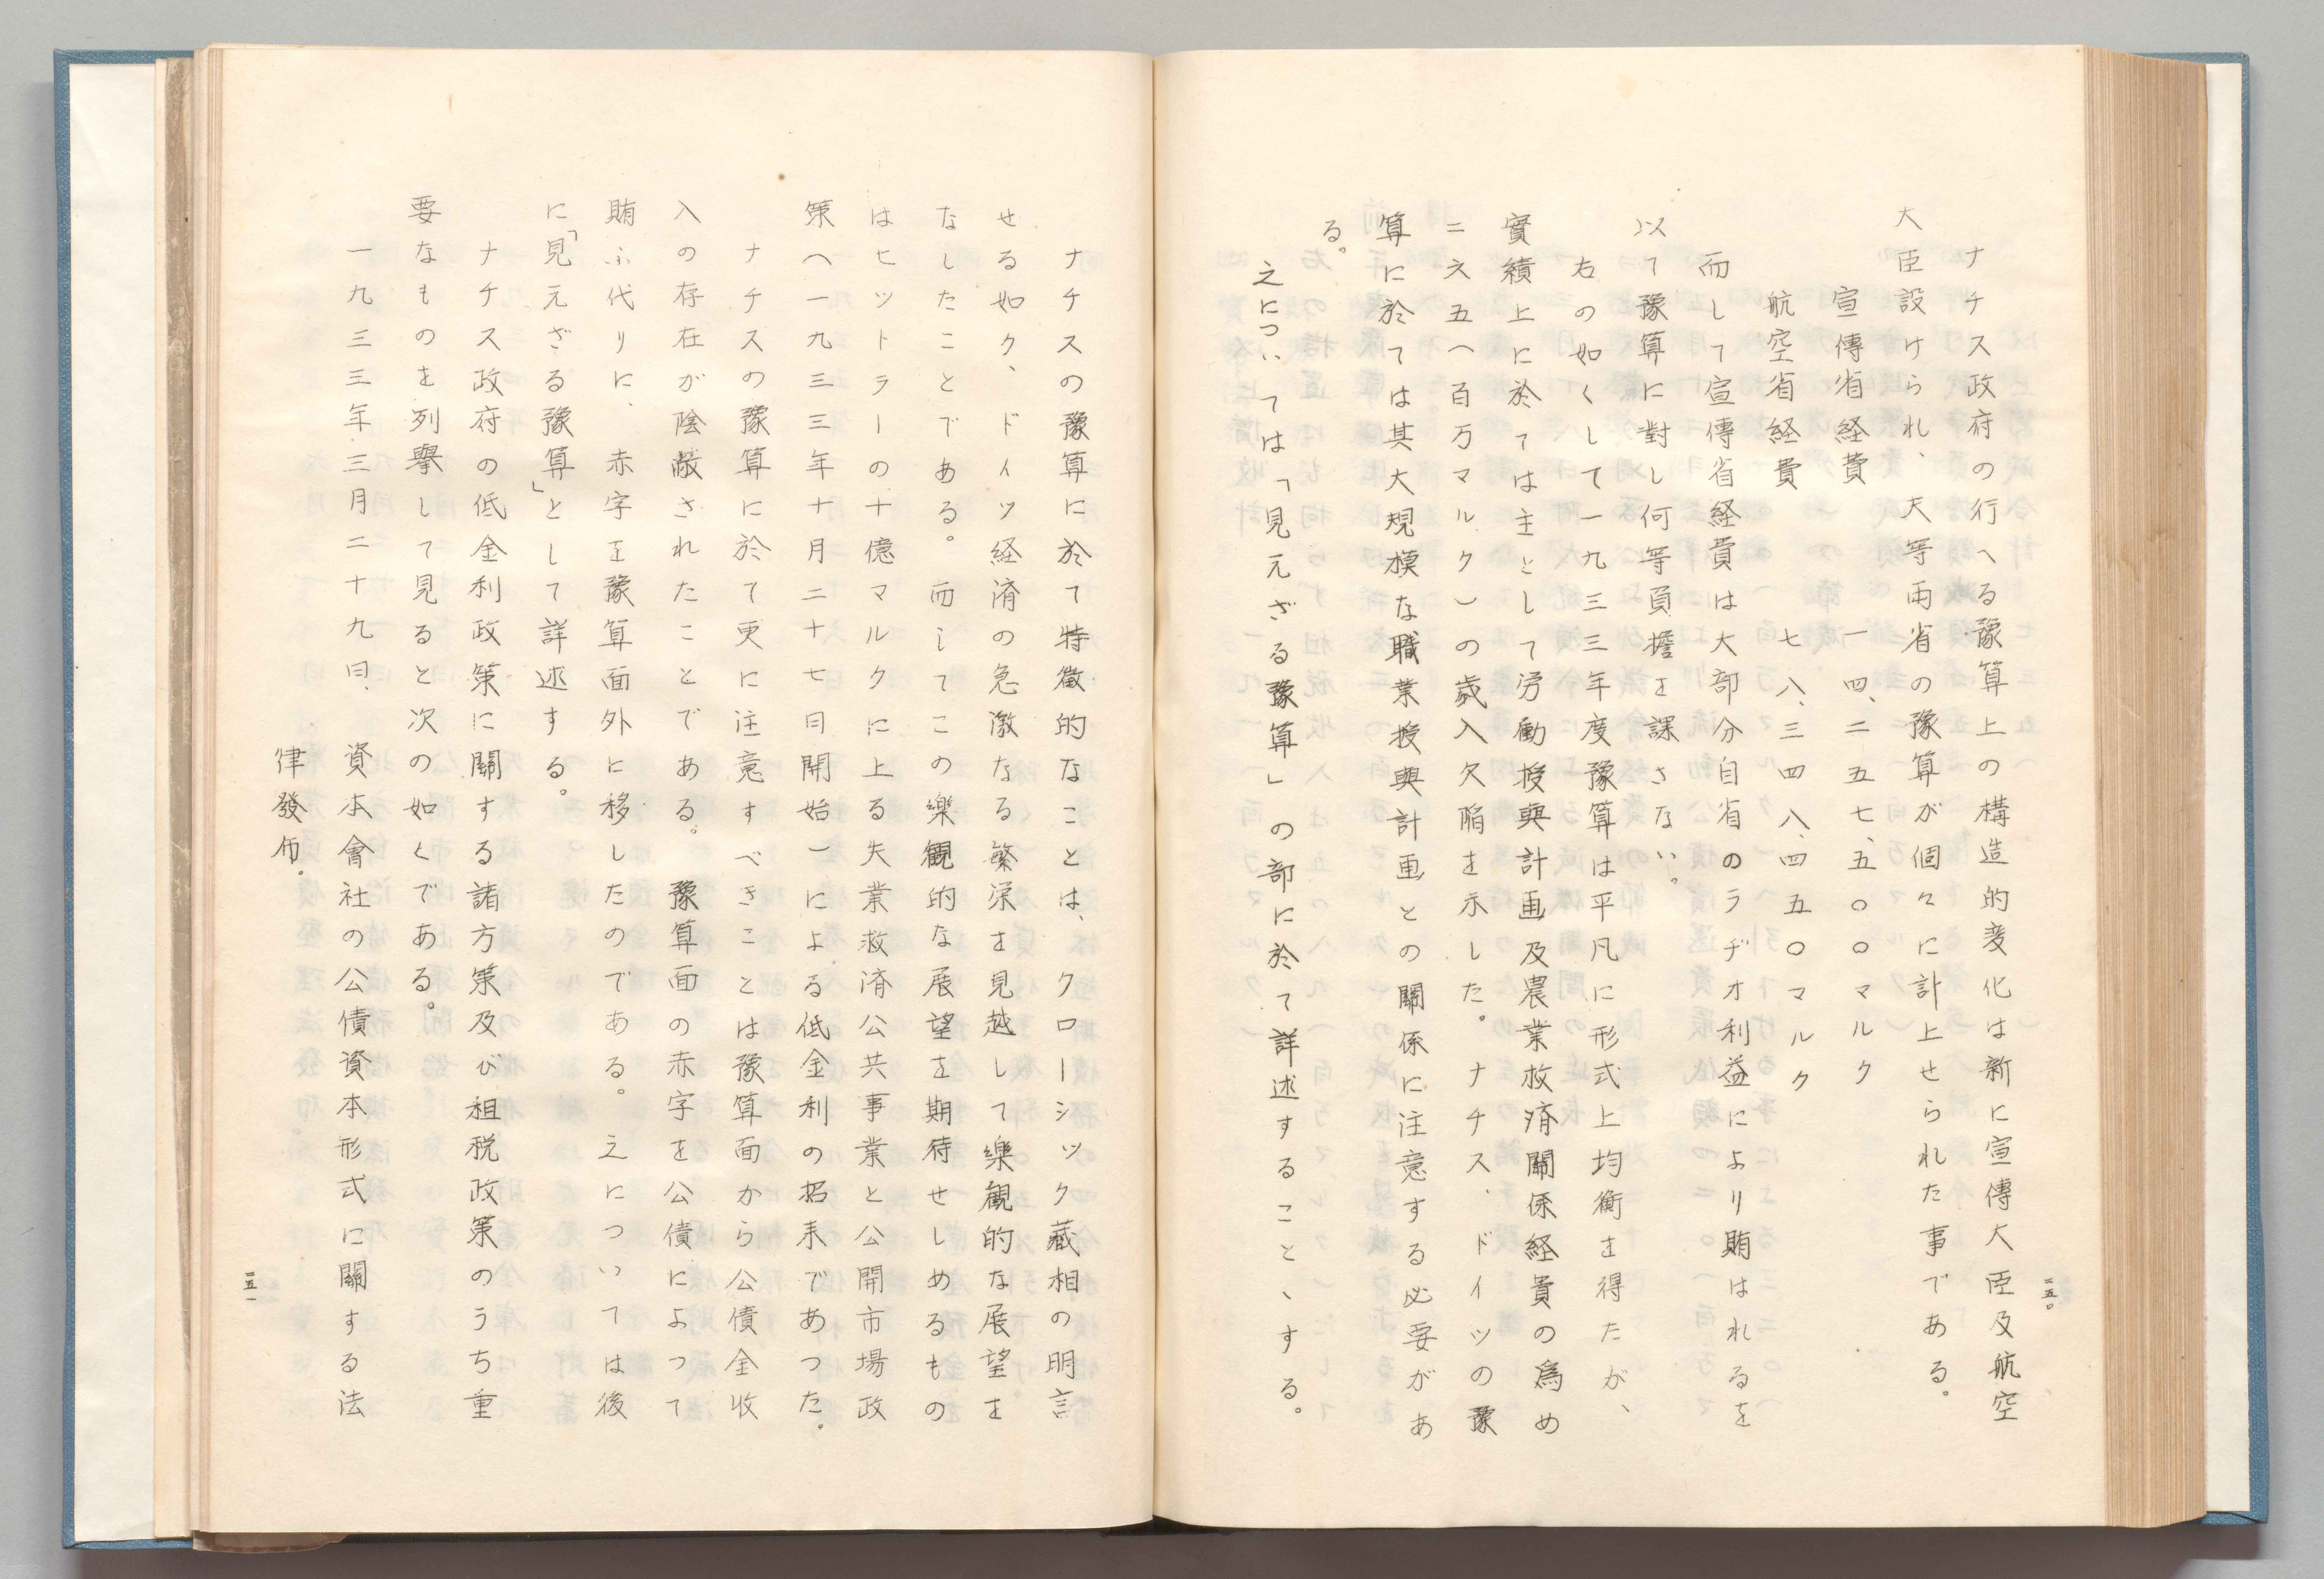 ナチス政府の行へる豫算上の構造的変化は新に宣傳大臣及航空
大臣設けられ、夫等両省の豫算が個々に計上せられた事である。
宣傳省経費　一四、二五七、五〇〇マルク
航空省経費　七八、三四八、四五〇マルク
而して宣傳省経費は大部分自省のラヂオ利益により賄はれるを
以て豫算に對し何等負擔を課さない。
右の如くして一九三三年度豫算は平凡に形式上均衡を得たが、
實績上に於ては主として労働授與計画及農業救済關係経費の為め
二六五(百万マルク)の歳入欠陥を示した。ナチス、ドイツの豫
算に於ては其大規模な職業授與計画との關係に注意する必要があ
る。
之については「見元ざる豫算」の部に於て詳述することゝする。
二五〇
ナチスの豫算に於て特徴的なことは、クローシック藏相の明言
せる如ク、ドイツ経済の急激なる繁栄を見越して樂観的な展望を
なしたことである。而してこの樂観的な展望を期待せしめるもの
はヒットラーの十億マルクに上る失業救済公共事業と公開市場政
策(一九三三年十月二十七日開始)による低金利の招来であつた。
ナチスの豫算に於て更に注意すべきことは豫算面から公債金収
入の存在が陰蔽されたことである。豫算面の赤字を公債によつて
賄ふ代りに、赤字を豫算面外に移したのである。之については後
に「見元ざる豫算」として詳述する。
ナチス政府の低金利政策に關する諸方策及び租税政策のうち重
要なものを列擧して見ると次の如くである。
一九三三年三月二十九日、資本會社の公債資本形式に關する法
律發布。
二五一